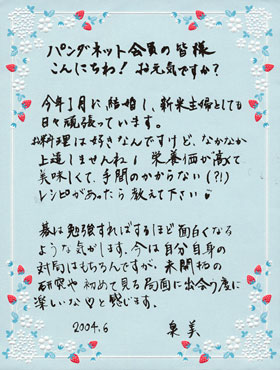 パンダネット会員の皆様
こんにちわ! お元気ですか?
今年1月に結婚し、新米主婦としても
日々頑張っています。
お料理は好きなんですけど、なかなか
上達しませんね! 栄養価が高くて
美味しくて、手間のかからない(?!)
レシピがあったら教えて下さい♥
碁は勉強すればするほど面白くなる
ような気がします。今は自分自身の
対局はもちろんですが、未開拓の
研究や初めて見る局面に出会う度に
楽しいな♡と感じます。
2004.6 泉美